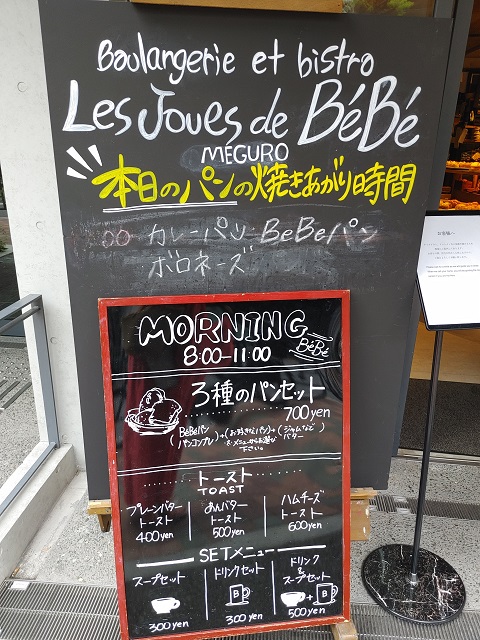 Boulangerie et bistro
Les Joues de BéBé
MEGURO
本日のパンの焼きあがり時間
カレーパン BeBeパン
ボロネーズ
MORNING
8:00-11:00
BéBé
3種のパンセット
700yen
(BéBéパン パンコンプレ)+(お好きなパン)+(ジャムなど バター)
& メニューからお選び
下さい。
トースト
TOAST
プレーンバター
トースト
400yen
あんバター
トースト
500yen
ハムチーズ
トースト
600yen
SETメニュー
スープセット
300yen
ドリンクセット
B
300yen
ドリンク
&
スープセット
+ B
500yen
お客様へ